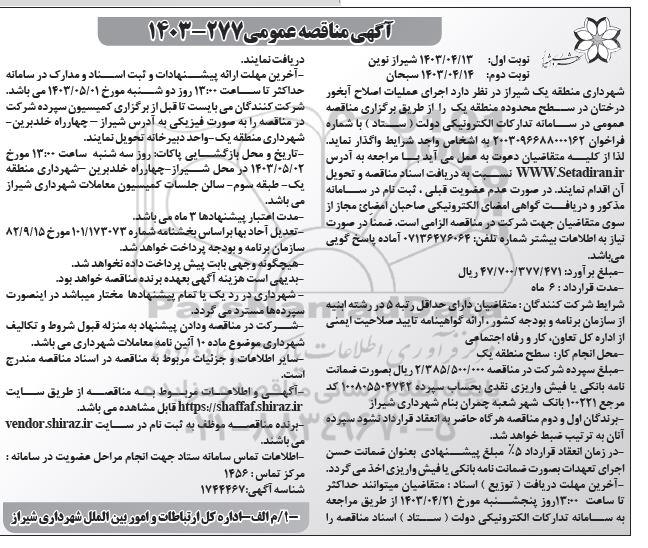 آگهی مناقصه عمومی ۲۷۷-۱۴۰۳
نوبت اول: ۱۴۰۳/۰۴/۱۳ شیراز نوین
نوبت دوم: ۱۴۰۳/۰۴/۱۴ سبحان
شهرداری منطقه یک شیراز در نظر دارد اجرای عملیات اصلاح آبخور
درختان در سطح محدوده منطقه یک را از طریق برگزاری مناقصه
عمومی در سامانه تدارکات الکترونیکی دولت (ستاد) با شماره
فراخوان ۲۰۰۳۰۹۶۶۸۸۰۰۰۱۶۲ به اشخاص واجد شرایط واگذار نماید.
لذا از کلیه متقاضیان دعوت به عمل می آید با مراجعه به آدرس
WWW.Setadiran.ir نسبت به دریافت اسناد مناقصه و تحویل
آن اقدام نمایند. در صورت عدم عضویت قبلی ، ثبت نام در سامانه
مذکور و دریافت گواهی امضای الکترونیکی صاحبان امضای مجاز از
سوی متقاضیان جهت شرکت در مناقصه الزامی است. ضمنا در صورت
نیاز به اطلاعات بیشتر شماره تلفن: ۰۷۱۳۶۴۷۶۰۶۴ آماده پاسخ گویی
می‌باشد.
-مبلغ برآورد: ۴۷/۷۰۰/۳۷۷/۴۷۱ ریال
-مدت قرارداد : ۶ ماه
شرایط شرکت کنندگان : متقاضیان دارای حداقل رتبه ۵ در رشته ابنیه
از سازمان برنامه و بودجه کشور ، ارائه گواهینامه تایید صلاحیت ایمنی
از اداره کل تعاون، کار و رفاه اجتماعی
-محل انجام کار: سطح منطقه یک
-مبلغ سپرده شرکت در مناقصه ۲/۳۸۵/۵۰۰/۰۰۰ ریال بصورت ضمانت
نامه بانکی یا فیش واریزی نقدی بحساب سپرده ۱۰۰۸۰۵۵۰۴۷۴۲ کد
مرجع ۱۰۰۲۲۱ بانک شهر شعبه چمران بنام شهرداری شیراز
-برندگان اول و دوم مناقصه هرگاه حاضر به انعقاد قرارداد نشود سپرده
آنان به ترتیب ضبط خواهد شد.
-در زمان انعقاد قرارداد ۵٪ مبلغ پیشنهادی بعنوان ضمانت حسن
اجرای تعهدات بصورت ضمانت نامه بانکی یا فیش واریزی اخذ می گردد.
-آخرین مهلت دریافت ( توزیع ) اسناد : متقاضیان میتوانند حداکثر
تا ساعت ۱۳:۰۰روز پنجشنبه مورخ ۱۴۰۳/۰۴/۲۱ از طریق مراجعه
به سامانه تدارکات الکترونیکی دولت ( ستاد ) اسناد مناقصه را
دریافت نمایند.
-آخرین مهلت ارائه پیشنهادات و ثبت اسناد و مدارک در سامانه
حداکثر تا ساعت ۱۳:۰۰ روز دو شنبه مورخ ۱۴۰۳/۰۵/۰۱ می باشد.
شرکت کنندگان می بایست تا قبل از برگزاری کمیسیون سپرده شرکت
در مناقصه را به صورت فیزیکی به آدرس شیراز – چهارراه خلدبرین-
شهرداری منطقه یک-واحد دبیرخانه تحویل نمایند.
-تاریخ و محل بازگشایی پاکات: روز سه شنبه ساعت ۱۳:۰۰ مورخ
۱۴۰۳/۰۵/۰۲ در محل شیراز-چهارراه خلدبرین –شهرداری منطقه
یک- طبقه سوم- سالن جلسات کمیسیون معاملات شهرداری شیراز
می باشد.
-مدت اعتبار پیشنهادها ۳ ماه می باشد.
-تعدیل آحاد بها براساس بخشنامه شماره ۱۰۱/۱۷۳۰۷۳ مورخ ۸۲/۹/۱۵
سازمان برنامه و بودجه پرداخت خواهد شد.
-هیچگونه وجهی بابت پیش پرداخت داده نخواهد شد.
-بدیهی است هزینه آگهی بعهده برنده مناقصه خواهد بود.
- شهرداری در رد یک یا تمام پیشنهادها مختار میباشد در اینصورت
سپرده‌ها مسترد می گردد.
-شرکت در مناقصه ودادن پیشنهاد به منزله قبول شروط و تکالیف
شهرداری موضوع ماده ۱۰ آئین نامه معاملات شهرداری می باشد.
-سایر اطلاعات و جزئیات مربوط به مناقصه در اسناد مناقصه مندرج
است.
-آگهی و اطلاعات مربوط به مناقصه از طریق سایت
https://shaffaf.shiraz.ir قابل مشاهده می باشد.
-برنده مناقصه موظف به ثبت نام در سایت vendor.shiraz.ir
می باشند.
-اطلاعات تماس سامانه ستاد جهت انجام مراحل عضویت در سامانه :
مرکز تماس : ۱۴۵۶
شناسه آگهی: ۱۷۴۴۴۶۷
-۱/م الف-اداره کل ارتباطات و امور بین الملل شهرداری شیراز